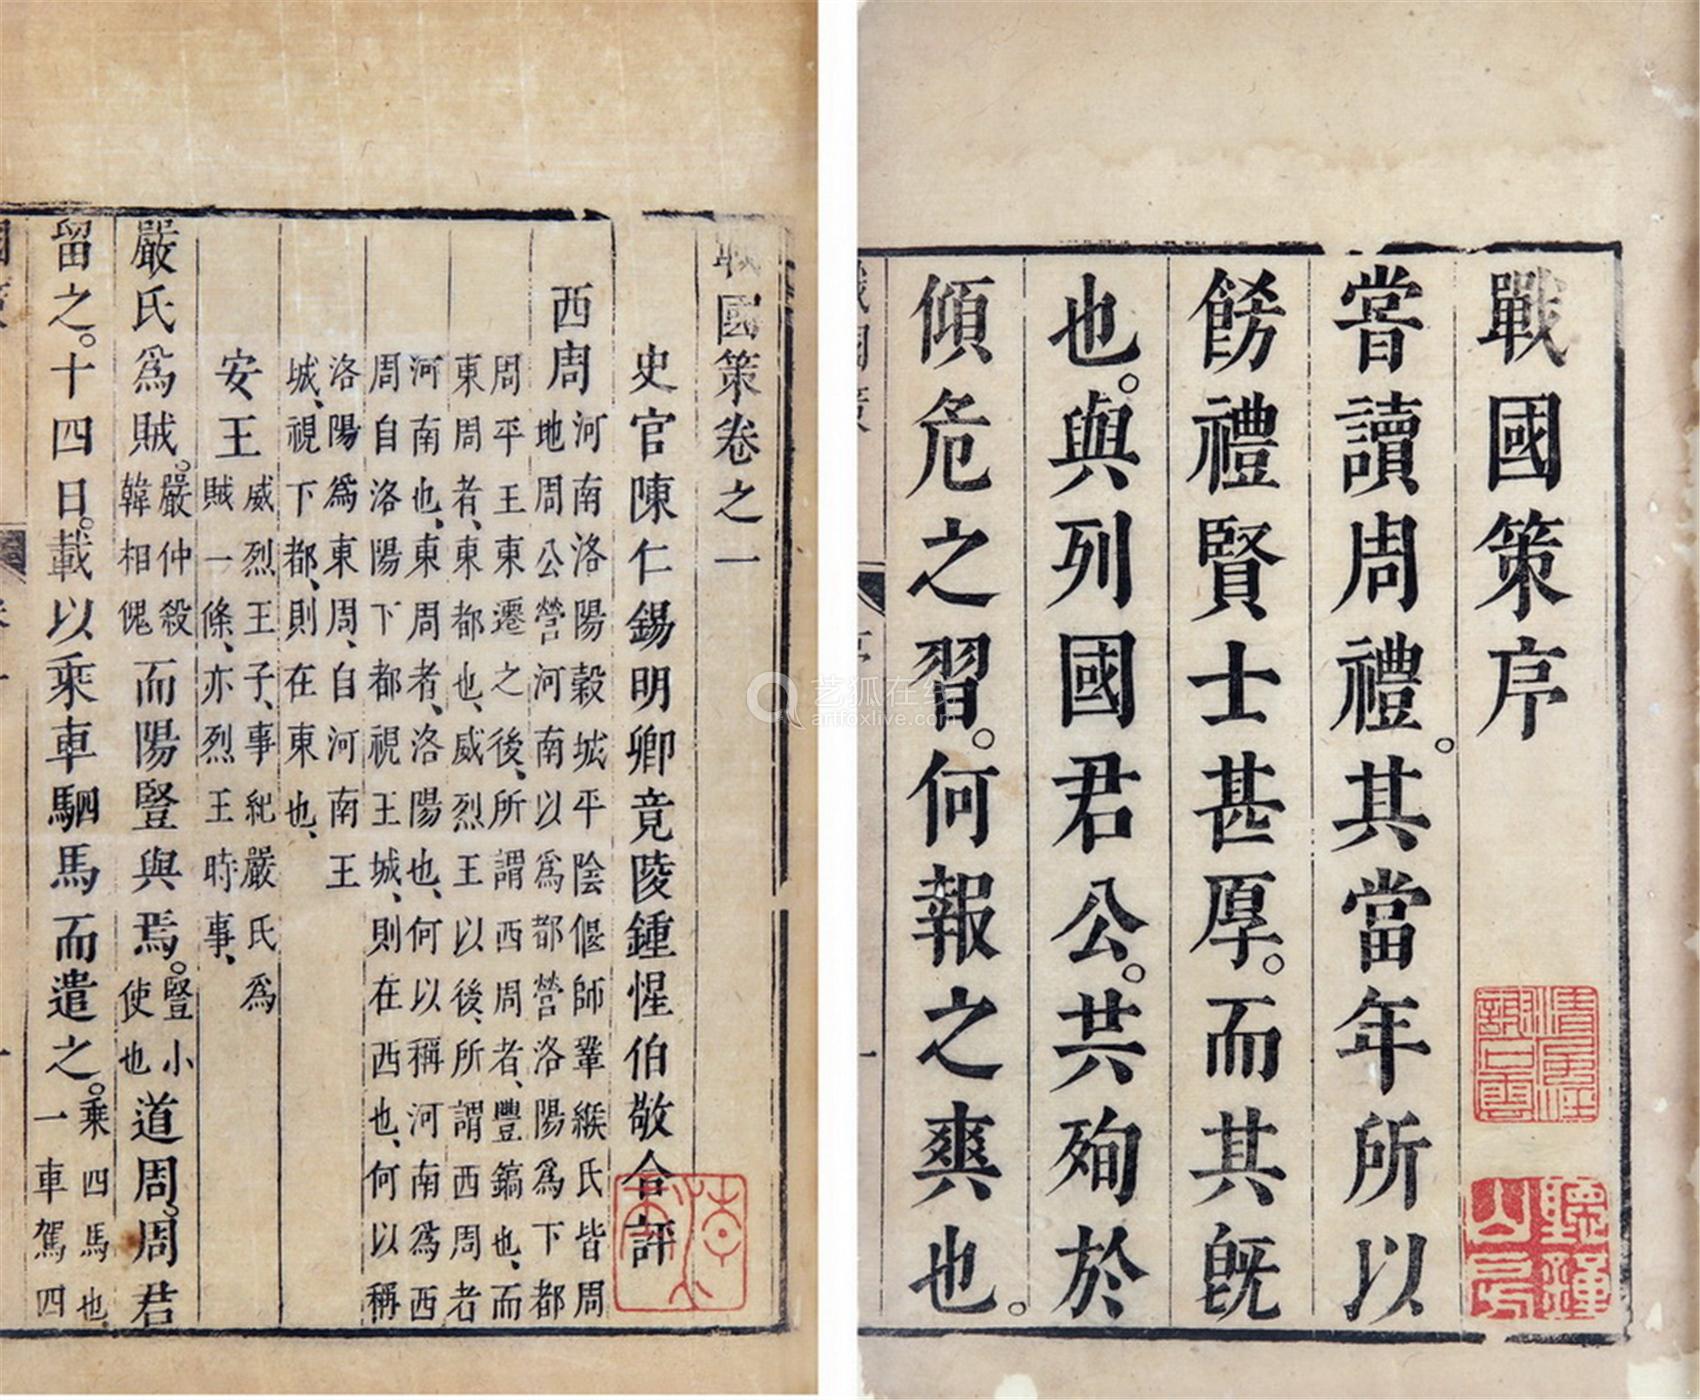 戰國策序
嘗讀周禮。其當年所以
餝禮賢士甚厚。而其旣
也。與列國君公。共殉於
傾危之習。何報之爽也。
戰國策卷之一
史官陳仁錫明卿竟陵鍾惺伯敬合評
西周
河南洛陽穀城平陰偃師鞏緱氏皆周
地周公營河南以為都營洛陽為下都
周平王東遷之後、所謂西周者、豐鎬也、而
東周者、東都也、威烈王以後、所謂西周者
河南也、東周者、洛陽也、何以稱河南為西
周自洛陽下都視王城、則在西也、何以稱
洛陽為東周、自河南王
城、視下都、則在東也、
安王
威烈王子、事紀嚴氏為
賊一條、亦烈王時事、
嚴氏為賊。嚴仲殺韓相傀而陽豎與焉。豎小使也道周。周君
留之。十四日。載以乘車駟馬而遣之。乘四馬也、一車駕四
艺狐在线
artfoxlive.com